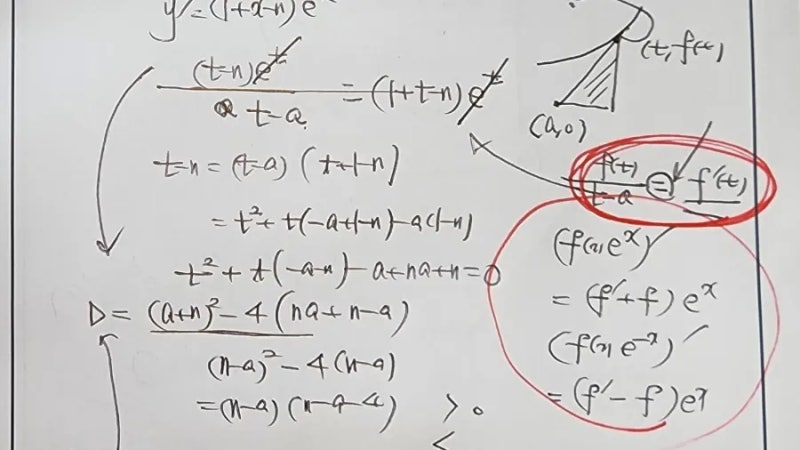 y'=(1+x-n)e
(t-n)e^t / t-a = (1+t-n)e^t
t-n = (t-a)(t+1-n)
= t²+t(-a+1-n)-a(1-n)
t²+t(-a-n)-a+na+n=0
D = (a+n)²-4(na+n-a)
(n-a)²-4(n-a)
=(n-a)(n-a-4) > 0
<
(t, f(t))
(a,0)
f(t) / t-a = f'(t)
(f(x)e^x)'
= (f'+f)e^x
(f(x)e^-x)'
= (f'-f)e^x